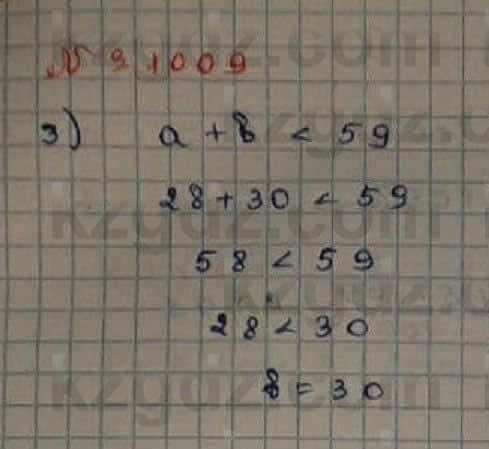 № 1009
3) a + b < 59
28 + 30 < 59
58 < 59
28 < 30
b = 30